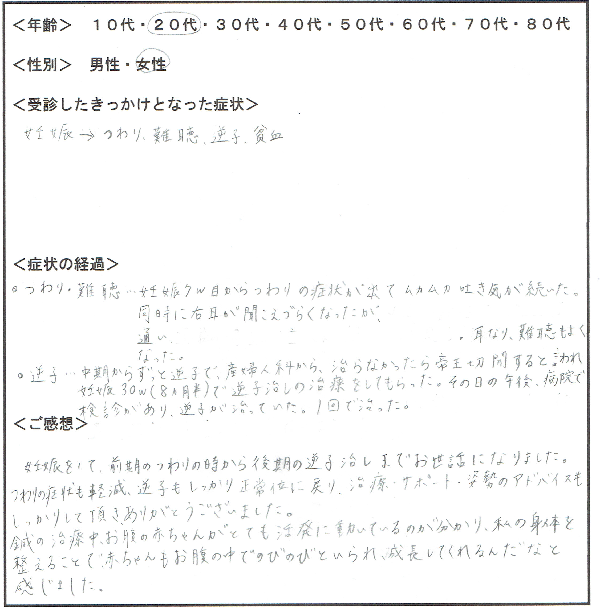 ＜年齢＞ 10代・20代・30代・40代・50代・60代・70代・80代
＜性別＞ 男性・女性
＜受診したきっかけとなった症状＞
妊娠→つわり、難聴、逆子、貧血
＜症状の経過＞
・つわり・難聴…妊娠7w目からつわりの症状が出てムカムカ吐き気が続いた。
同時に右耳が聞こえづらくなったが、
通い 。耳なり、難聴もよく
なった。
・逆子…中期からずっと逆子で、産婦人科から、治らなかったら帝王切開すると言われ
妊娠30w(8ヵ月半)で逆子治しの治療をしてもらった。その日の午後、病院で
検診があり、逆子が治っていた。1回で治った。
＜ご感想＞
妊娠をして、前期のつわりの時から後期の逆子治しまでお世話になりました。
つわりの症状も軽減、逆子もしっかり正常位に戻り、治療・サポート・姿勢のアドバイスも
しっかりして頂きありがとうございました。
鍼の治療中、お腹の赤ちゃんがとても活発に動いているのが分かり、私の身体を
整えることで赤ちゃんもお腹の中でのびのびといられ、成長してくれるんだなと
感じました。